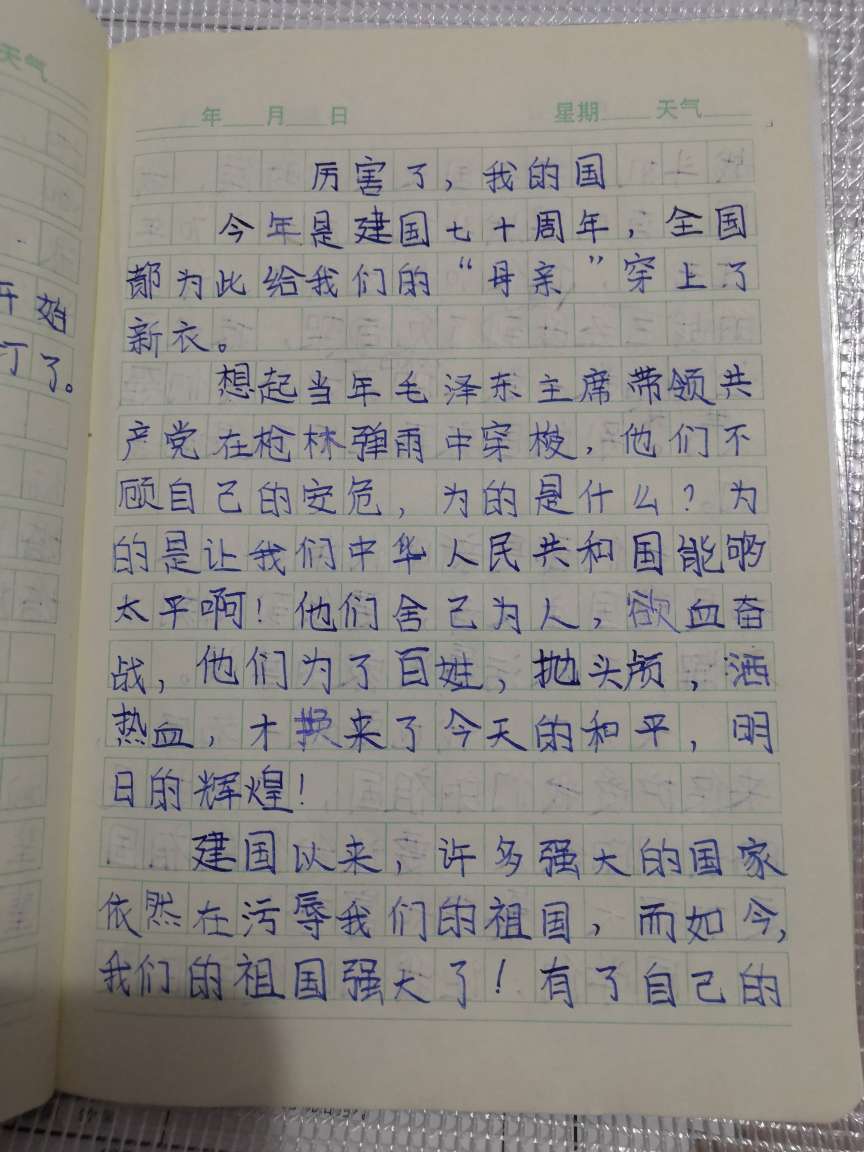 天气
年 月 日 星期 天气
开始
了。
厉害了，我的国
今年是建国七十周年，全国
都为此给我们的“母亲”穿上了
新衣。
想起当年毛泽东主席带领共
产党在枪林弹雨中穿梭，他们不
顾自己的安危，为的是什么？为
的是让我们中华人民共和国能够
太平啊！他们舍己为人，欲血奋
战，他们为了百姓，抛头颅，洒
热血，才换来了今天的和平，明
日的辉煌！
建国以来，许多强大的国家
依然在污辱我们的祖国，而如今，
我们的祖国强大了！有了自己的